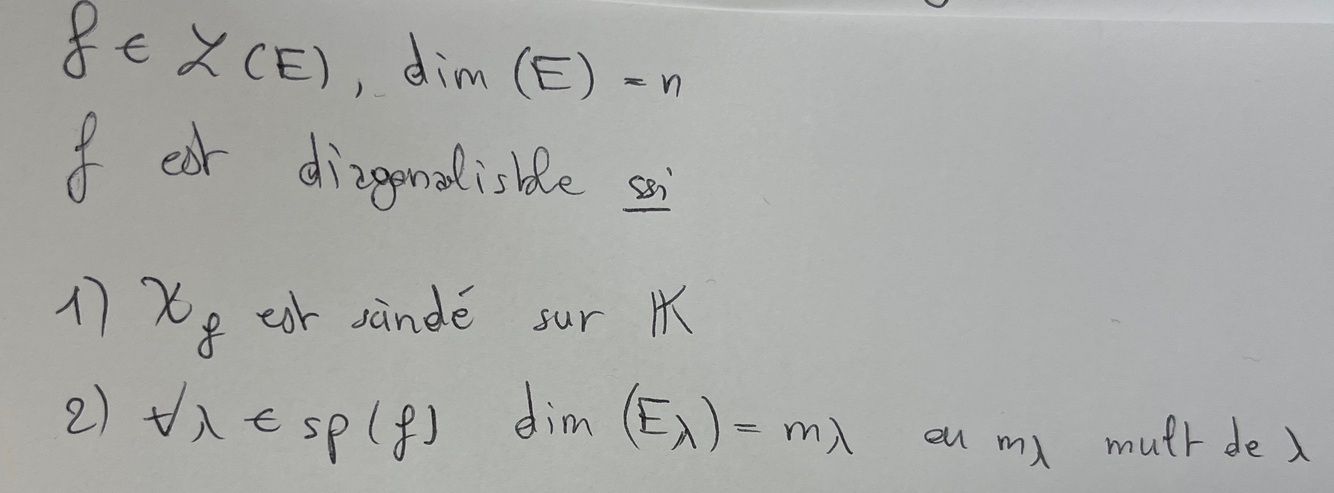 f ∈ ℒ(E), dim (E) = n
f est diagonalisble ssi
1) χ_f est scindé sur 𝕂
2) ∀λ ∈ sp(f) dim (E_λ) = m_λ ou m_λ mult de λ